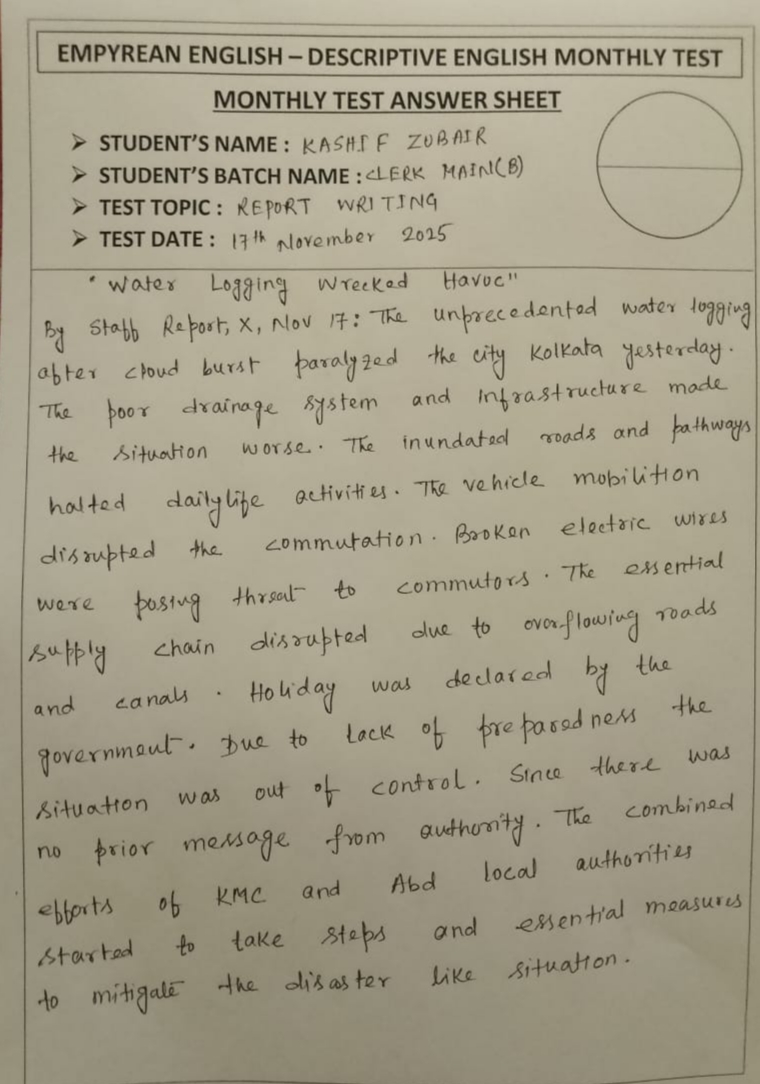 EMPYREAN ENGLISH – DESCRIPTIVE ENGLISH MONTHLY TEST
MONTHLY TEST ANSWER SHEET
➤ STUDENT'S NAME : KASHIF ZUBAIR
➤ STUDENT'S BATCH NAME : CLERK MAIN(B)
➤ TEST TOPIC : REPORT WRITING
➤ TEST DATE : 17th November 2025
"Water Logging Wrecked Havoc"
By Staff Report, X, Nov 17: The unprecedented water logging
after cloud burst paralyzed the city Kolkata yesterday.
The poor drainage system and infrastructure made
the situation worse. The inundated roads and pathways
halted dailylife activities. The vehicle mobilition
disrupted the commutation. Broken electric wires
were posing threat to commutors. The essential
supply chain disrupted due to overflowing roads
and canals. Holiday was declared by the
government. Due to lack of preparedness the
situation was out of control. Since there was
no prior message from authority. The combined
efforts of KMC and Abd local authorities
started to take steps and essential measures
to mitigate the disaster like situation.